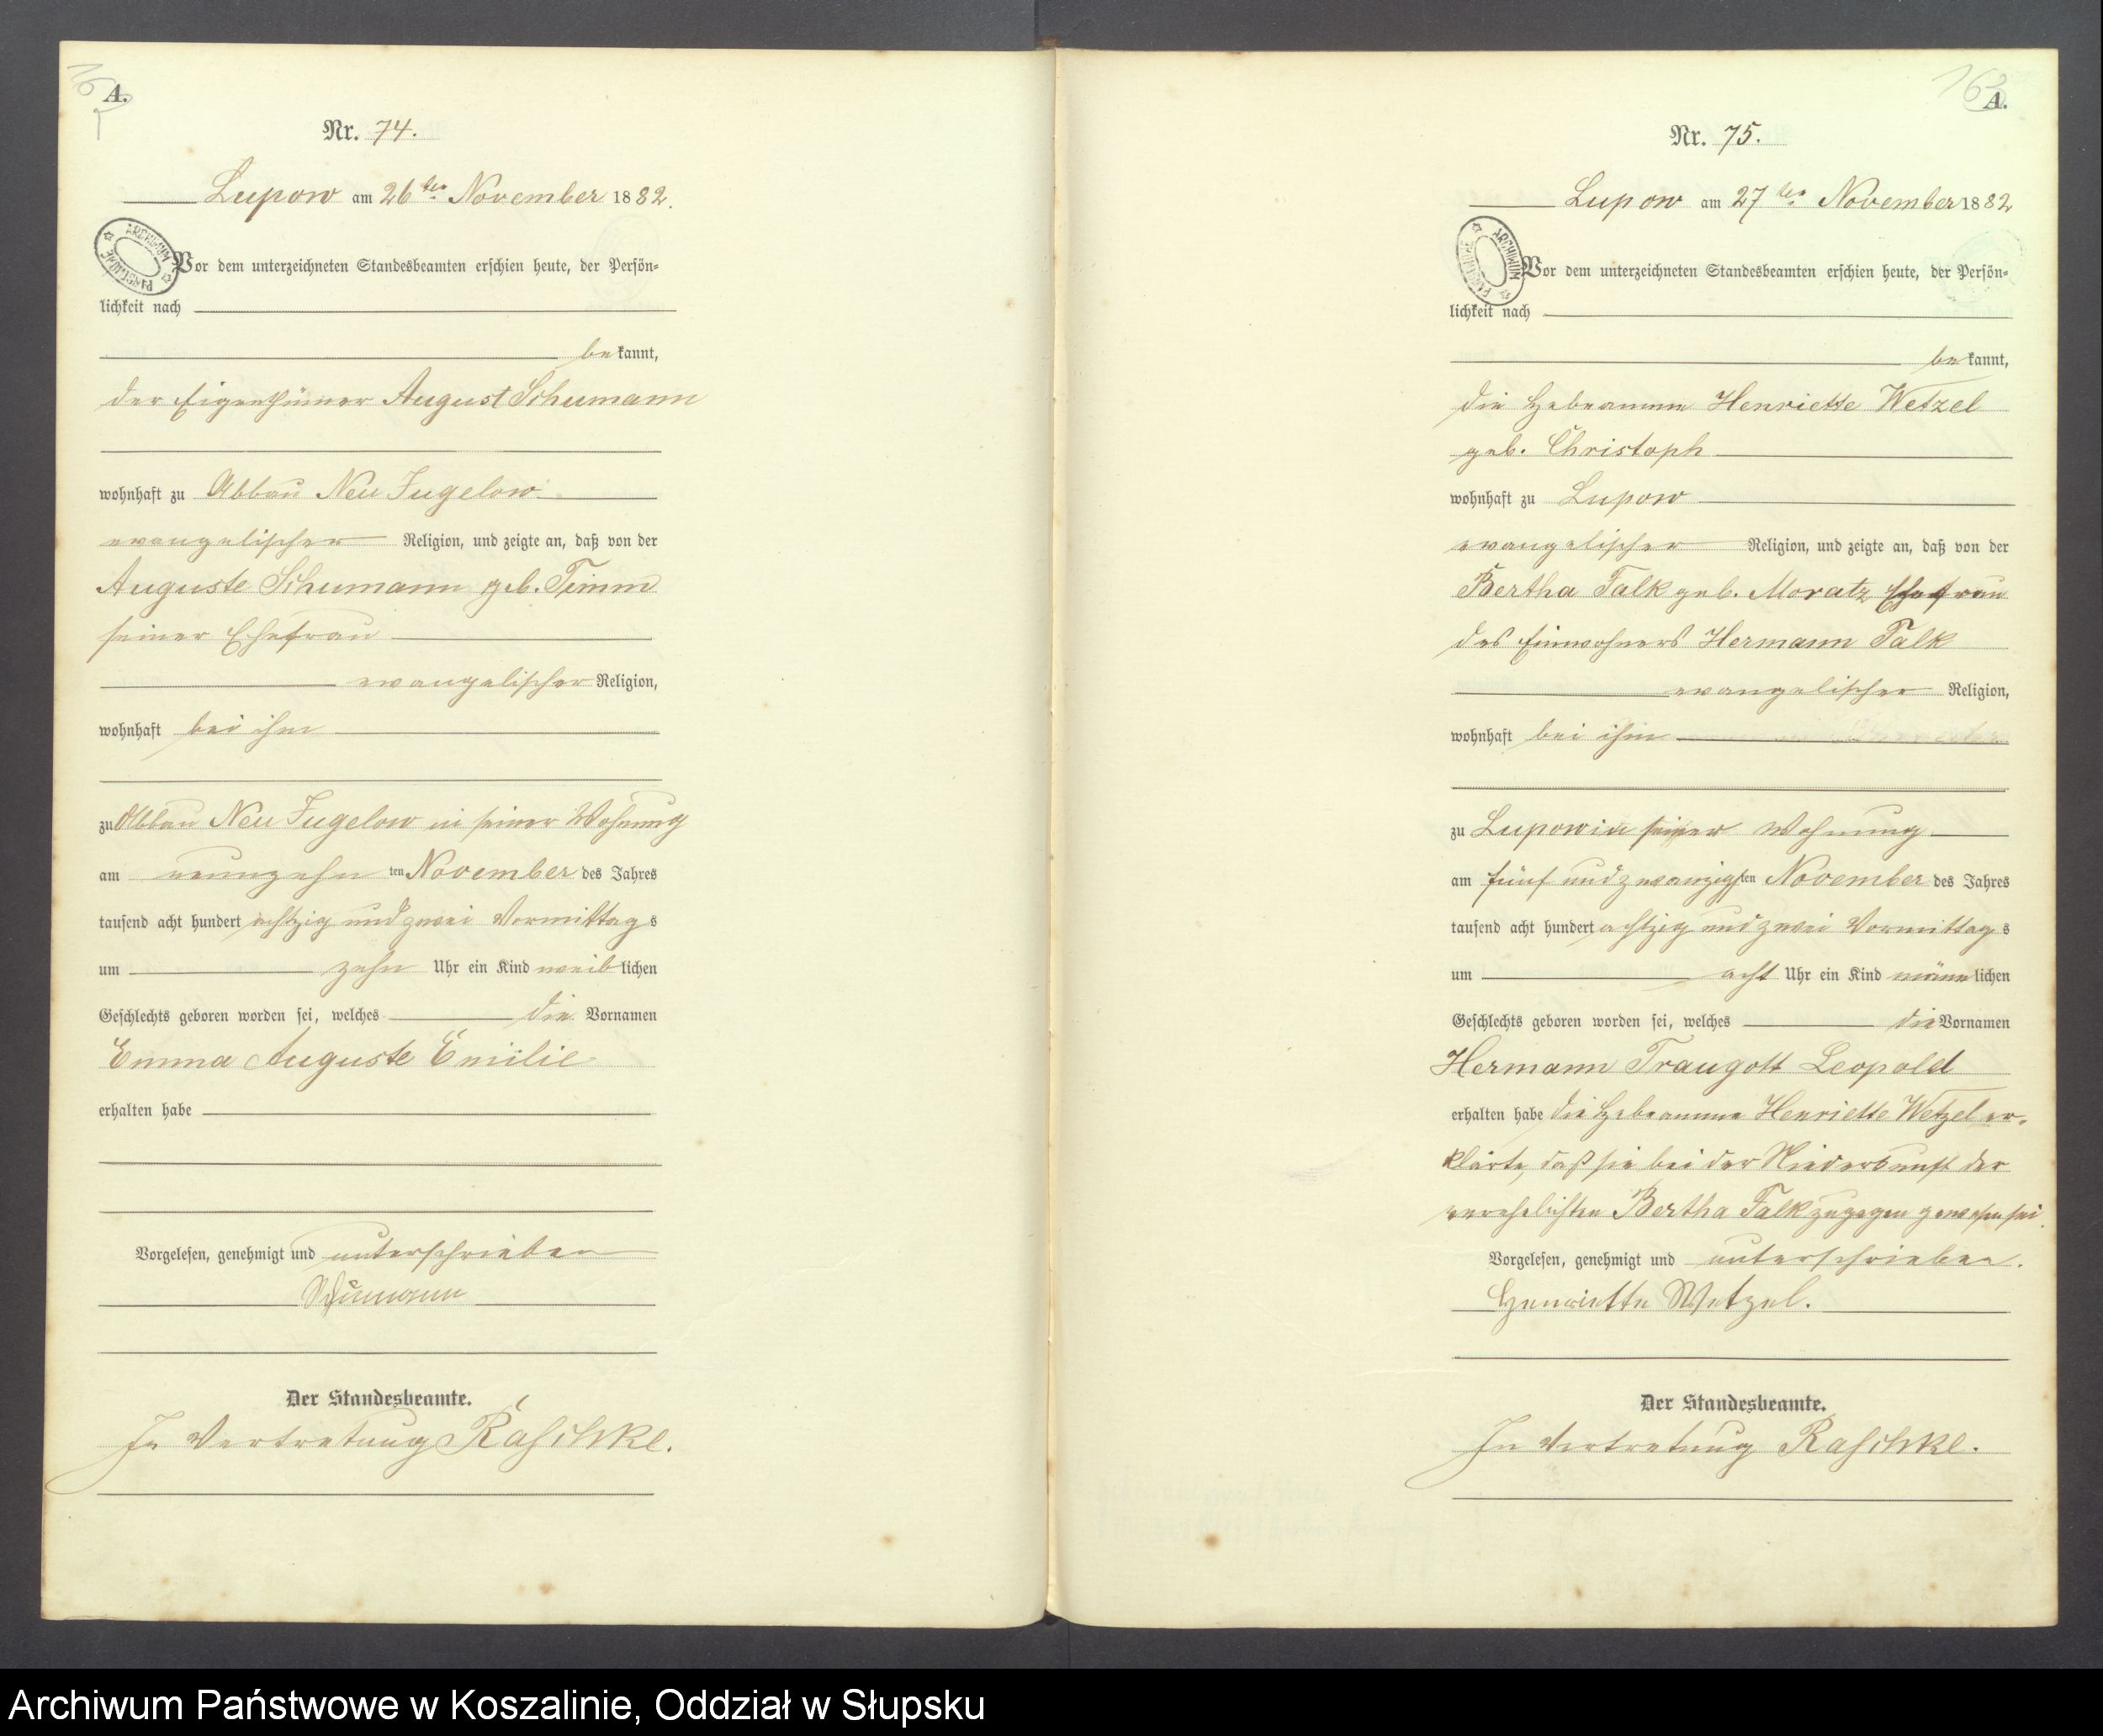 A.
Nr. 74.
Lupow am 26ten November 1882.
Vor dem unterzeichneten Standesbeamten erschien heute, der Persön=
lichkeit nach
bekannt,
der Eigenthümer August Schumann
wohnhaft zu Abbau Neu Jugelow
evangelischer Religion, und zeigte an, daß von der
Auguste Schumann geb. Timm
seiner Ehefrau
evangelischer Religion,
wohnhaft bei ihm
zu Abbau Neu Jugelow in seiner Wohnung
am neunzehn ten November des Jahres
tausend acht hundert achtzig und zwei Vormittags
um zehn Uhr ein Kind weiblichen
Geschlechts geboren worden sei, welches die Vornamen
Emma Auguste Emilie
erhalten habe
Vorgelesen, genehmigt und unterschrieben
Schumann
Der Standesbeamte.
In Vertretung Raschke.
163
A.
Nr. 75.
Lupow am 27ten November 1882
Vor dem unterzeichneten Standesbeamten erschien heute, der Persön=
lichkeit nach
bekannt,
die Hebeamme Henriette Wetzel
geb. Christoph
wohnhaft zu Lupow
evangelischer Religion, und zeigte an, daß von der
Bertha Falk geb. Moratz Ehefrau
des Einwohners Hermann Falk
evangelischer Religion,
wohnhaft bei ihm
zu Lupow in seiner Wohnung
am fünf und zwanzigsten November des Jahres
tausend acht hundert achtzig und zwei Vormittags
um acht Uhr ein Kind männlichen
Geschlechts geboren worden sei, welches die Vornamen
Hermann Traugott Leopold
erhalten habe die Hebeamme Henriette Wetzel er-
klärte, daß sie bei der Niederkunft der
verehelichten Bertha Falk zugegen gewesen sei.
Vorgelesen, genehmigt und unterschrieben.
Henriette Wetzel.
Der Standesbeamte.
In Vertretung Raschke.
Archiwum Państwowe w Koszalinie, Oddział w Słupsku